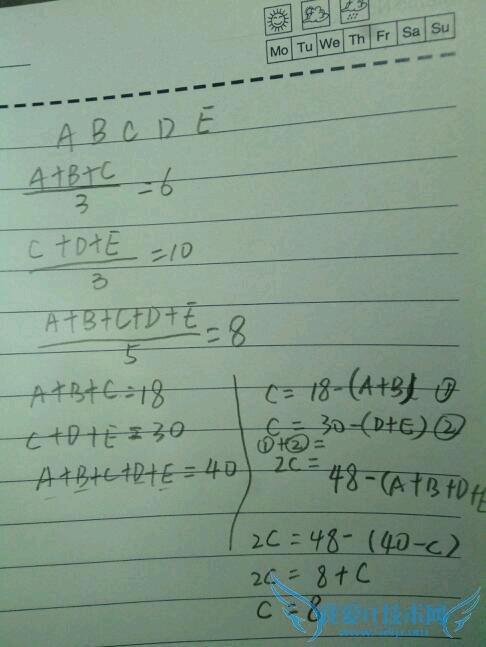 Mo Tu We Th Fr Sa Su
A B C D E
(A+B+C)/3 = 6
(C+D+E)/3 = 10
(A+B+C+D+E)/5 = 8
A+B+C=18
C+D+E=30
A+B+C+D+E=40
C = 18-(A+B) ①
C = 30-(D+E) ②
①+②=
2C = 48-(A+B+D+E
2C = 48-(40-C)
2C = 8+C
C = 8